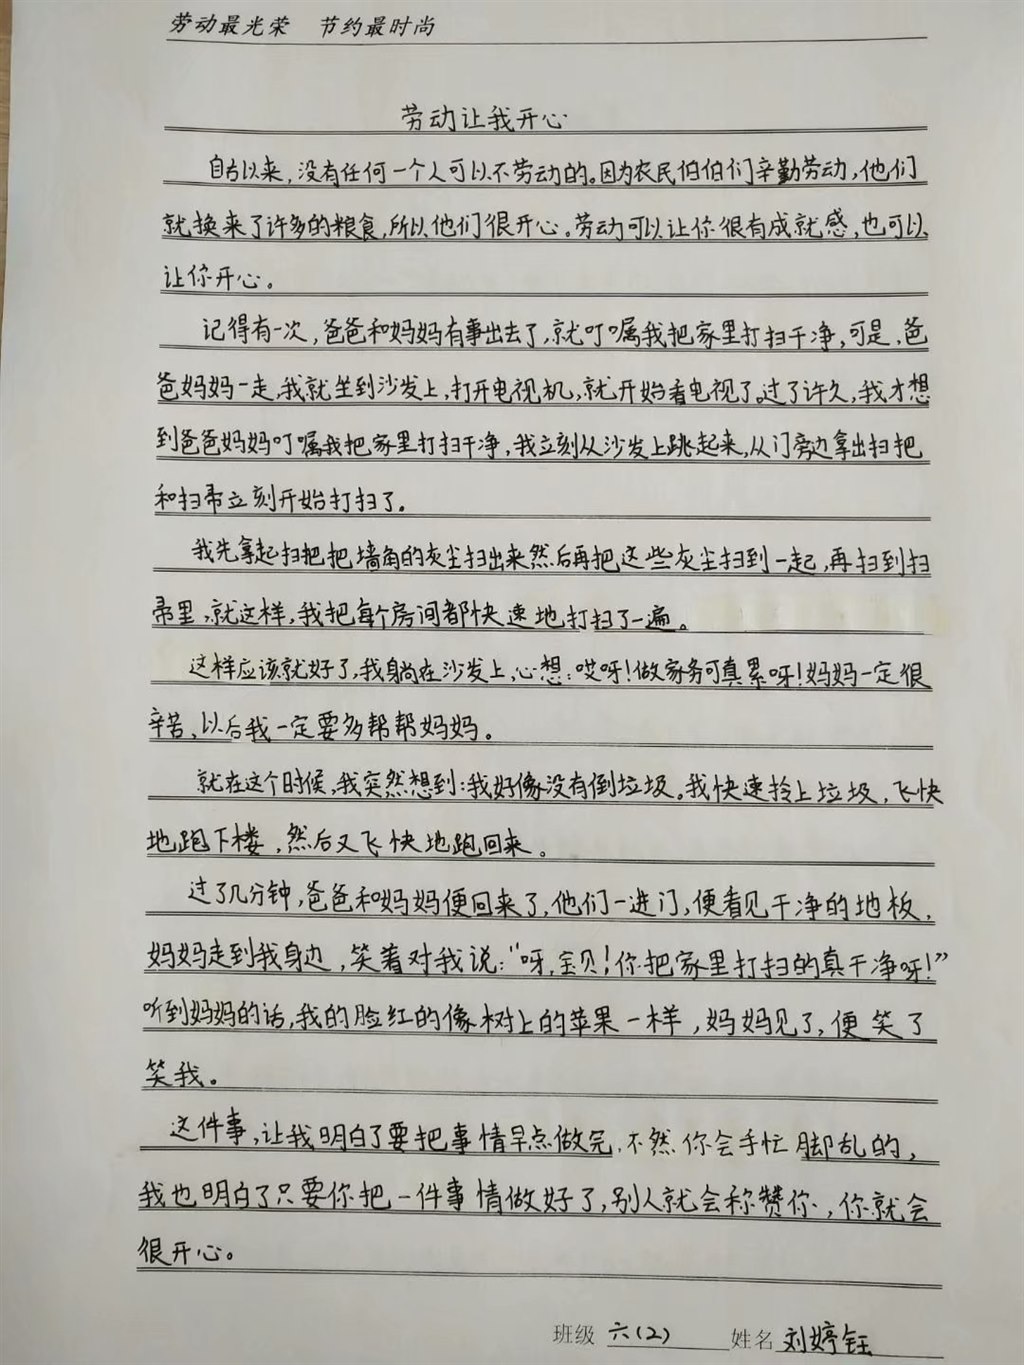 劳动最光荣　节约最时尚
劳动让我开心
自古以来，没有任何一个人可以不劳动的。因为农民伯伯们辛勤劳动，他们
就换来了许多的粮食，所以他们很开心。劳动可以让你很有成就感，也可以
让你开心。
记得有一次，爸爸和妈妈有事出去了，就叮嘱我把家里打扫干净，可是，爸
爸妈妈一走，我就坐到沙发上，打开电视机，就开始看电视了。过了许久，我才想
到爸爸妈妈叮嘱我把家里打扫干净，我立刻从沙发上跳起来，从门旁边拿出扫把
和扫帚立刻开始打扫了。
我先拿起扫把把墙角的灰尘扫出来然后再把这些灰尘扫到一起，再扫到扫
帚里，就这样，我把每个房间都快速地打扫了一遍。
这样应该就好了，我躺在沙发上，心想：哎呀！做家务可真累呀！妈妈一定很
辛苦、以后我一定要多帮帮妈妈。
就在这个时候，我突然想到：我好像没有倒垃圾。我快速拎上垃圾，飞快
地跑下楼，然后又飞快地跑回来。
过了几分钟，爸爸和妈妈便回来了，他们一进门，便看见干净的地板，
妈妈走到我身边，笑着对我说：“呀，宝贝！你把家里打扫的真干净呀！”
听到妈妈的话，我的脸红的像树上的苹果一样，妈妈见了，便笑了
笑我。
这件事，让我明白了要把事情早点做完，不然你会手忙脚乱的，
我也明白了只要你把一件事情做好了，别人就会称赞你，你就会
很开心。
班级 六（2） 姓名 刘婷钰